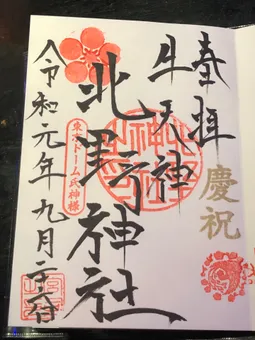 奉拝
慶祝
牛天神
北野神社
東京ドーム氏神様
令和元年九月二十六日